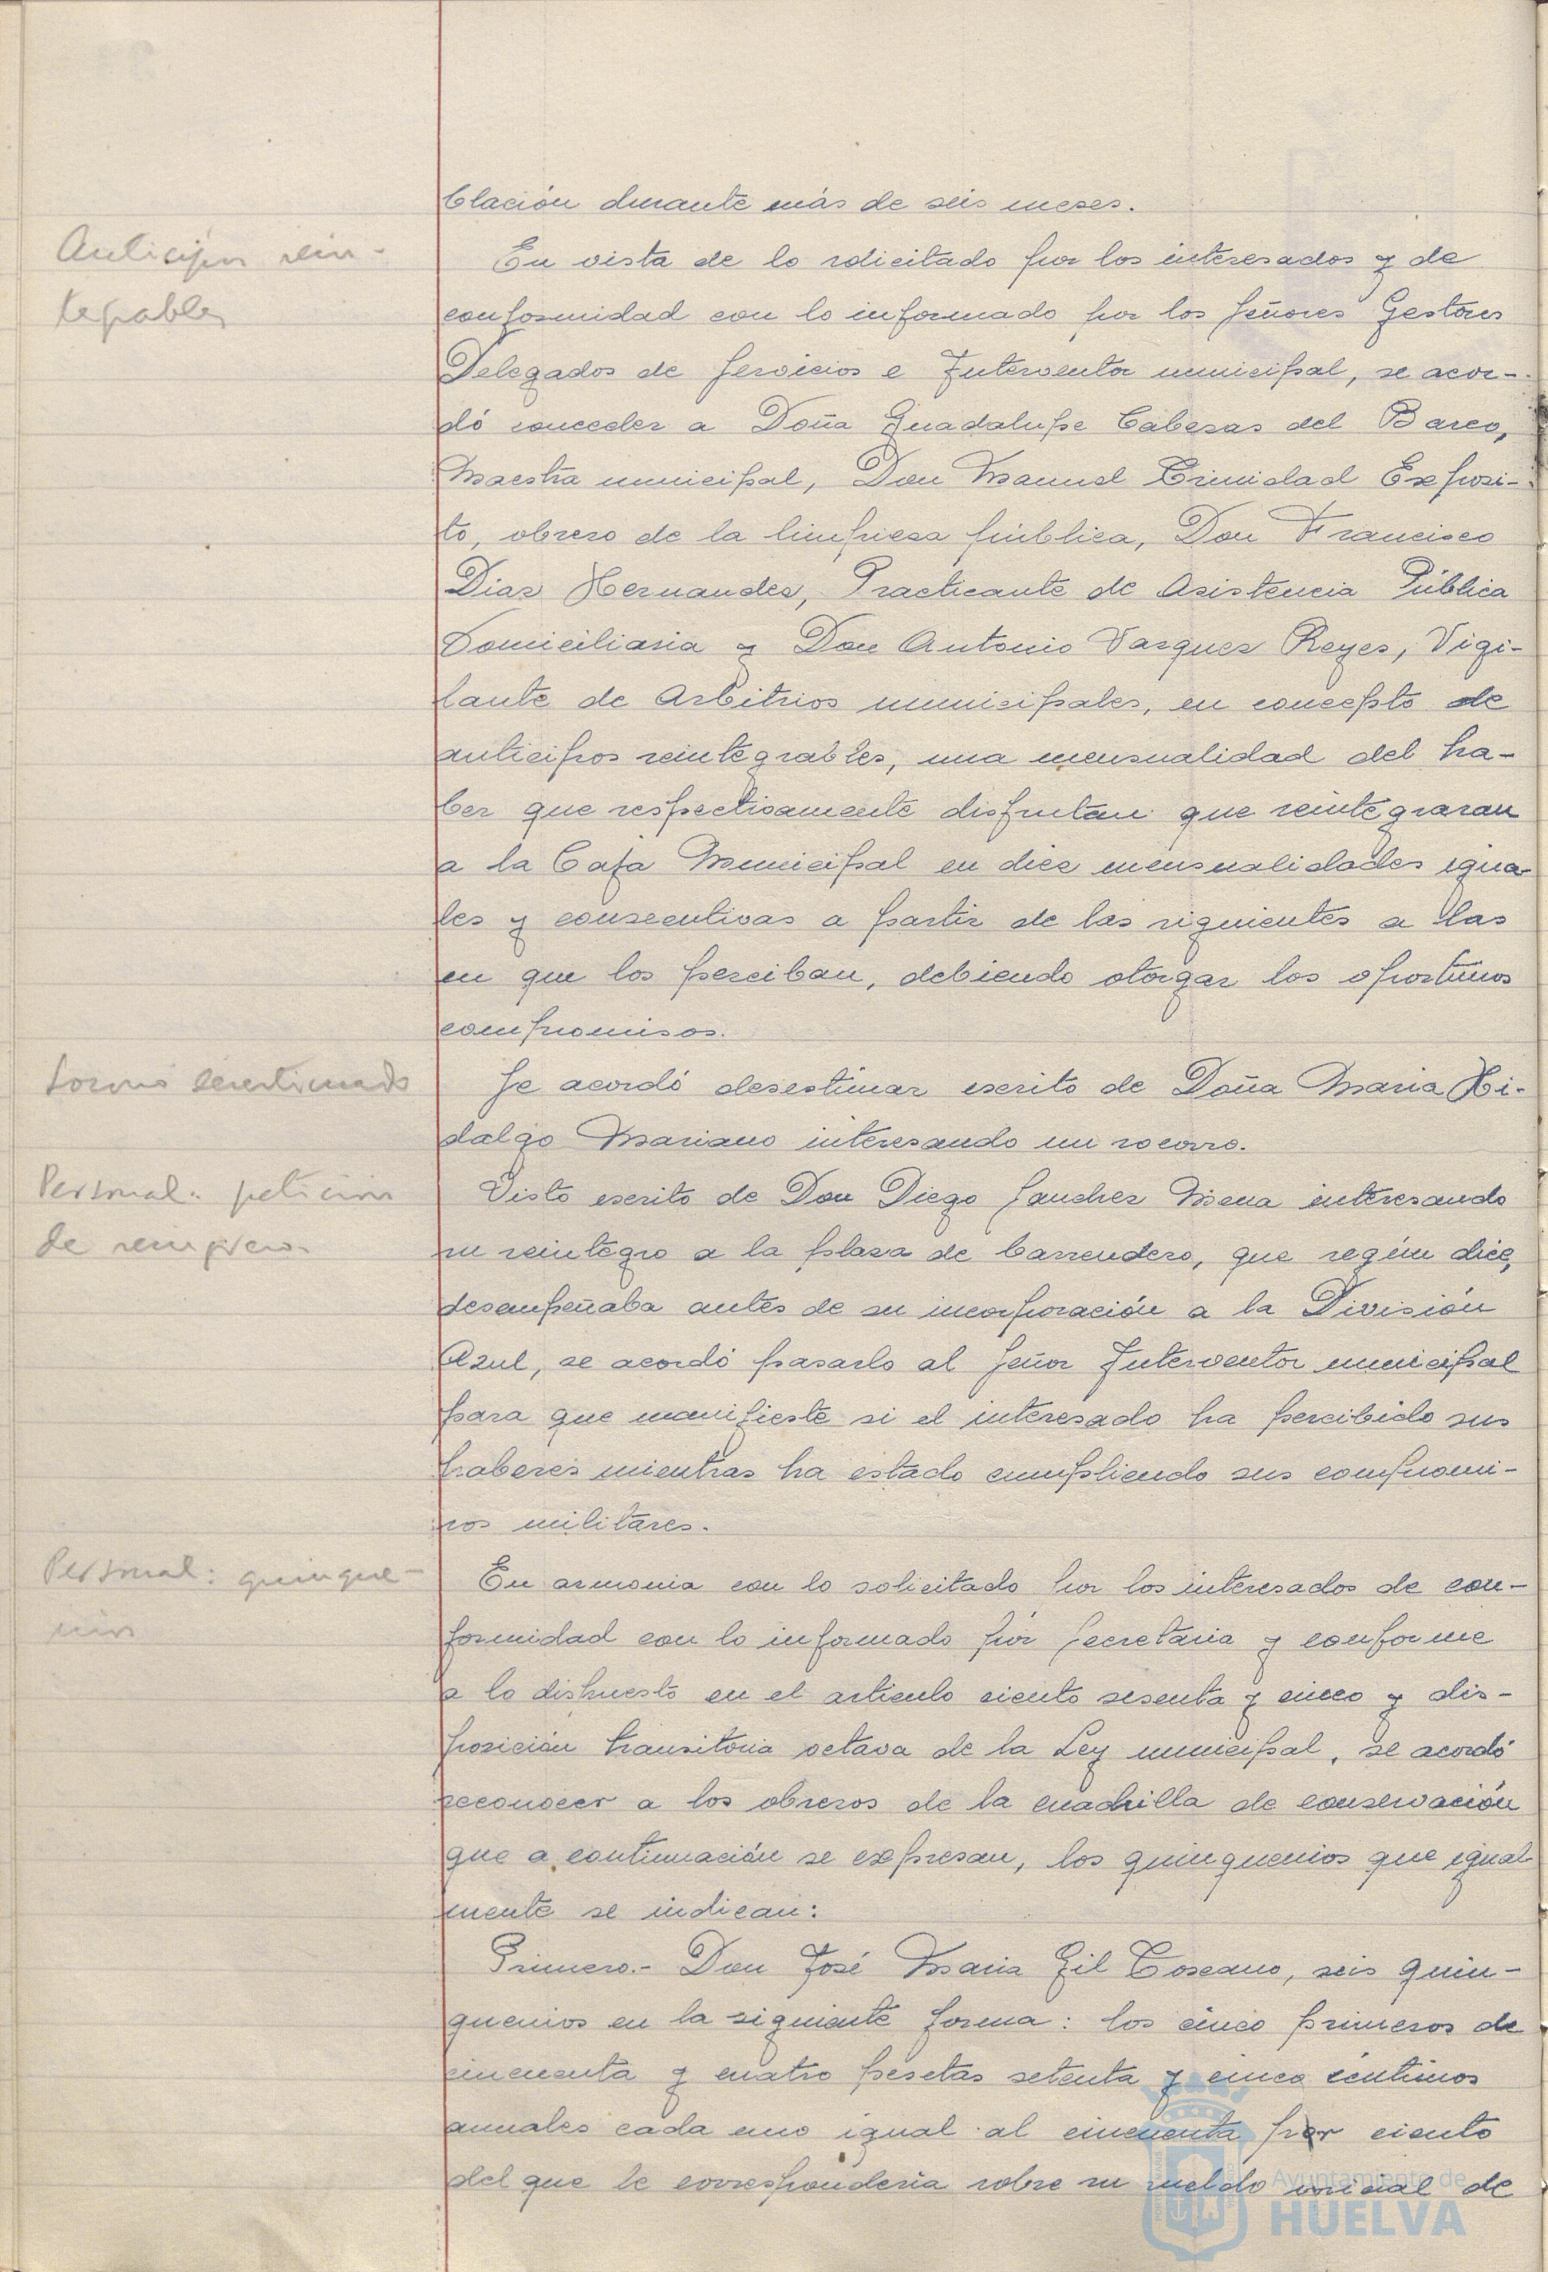 blación durante más de seis meses.
Anticipos rein-
tegrables
En vista de lo solicitado por los interesados y de
conformidad con lo informado por los Señores Gestores
Delegados de Servicios e Interventor municipal, se acor-
dó conceder a Doña Guadalupe Cabezas del Barco,
Maestra municipal, Don Manuel Trinidad Exposi-
to, obrero de la limpieza pública, Don Francisco
Diaz Hernandez, Practicante de Asistencia Pública
Domiciliaria y Don Antonio Vazquez Reyes, Vigi-
lante de Arbitrios municipales, en concepto de
anticipos reintegrables, una mensualidad del ha-
ber que respectivamente disfrutan que reintegraran
a la Caja Municipal en diez mensualidades igua-
les y consecutivas a partir de las siguientes a las
en que los perciban, debiendo otorgar los oportunos
compromisos.
Socorro desestimado
Se acordó desestimar escrito de Doña Maria Hi-
dalgo Mariano interesando un socorro.
Personal: petición
de reingreso.
Visto escrito de Don Diego Sanchez Mena interesando
su reintegro a la plaza de barrendero, que según dice,
desempeñaba antes de su incorporación a la División
Azul, se acordó pasarlo al Señor Interventor municipal
para que manifieste si el interesado ha percibido sus
haberes mientras ha estado cumpliendo sus compromi-
sos militares.
Personal: quinque-
nios
En armonia con lo solicitado por los interesados de con-
formidad con lo informado por Secretaria y conforme
a lo dispuesto en el articulo ciento sesenta y cinco y dis-
posición transitoria octava de la Ley municipal, se acordó
reconocer a los obreros de la cuadrilla de conservación
que a continuación se expresan, los quinquenios que igual-
mente se indican:
Primero.- Don José Maria Gil Toscano, seis quin-
quenios en la siguiente forma: los cinco primeros de
cincuenta y cuatro pesetas setenta y cinco céntimos
anuales cada uno igual al cincuenta por ciento
del que le correspondería sobre su sueldo inicial de
Ayuntamiento de
HUELVA